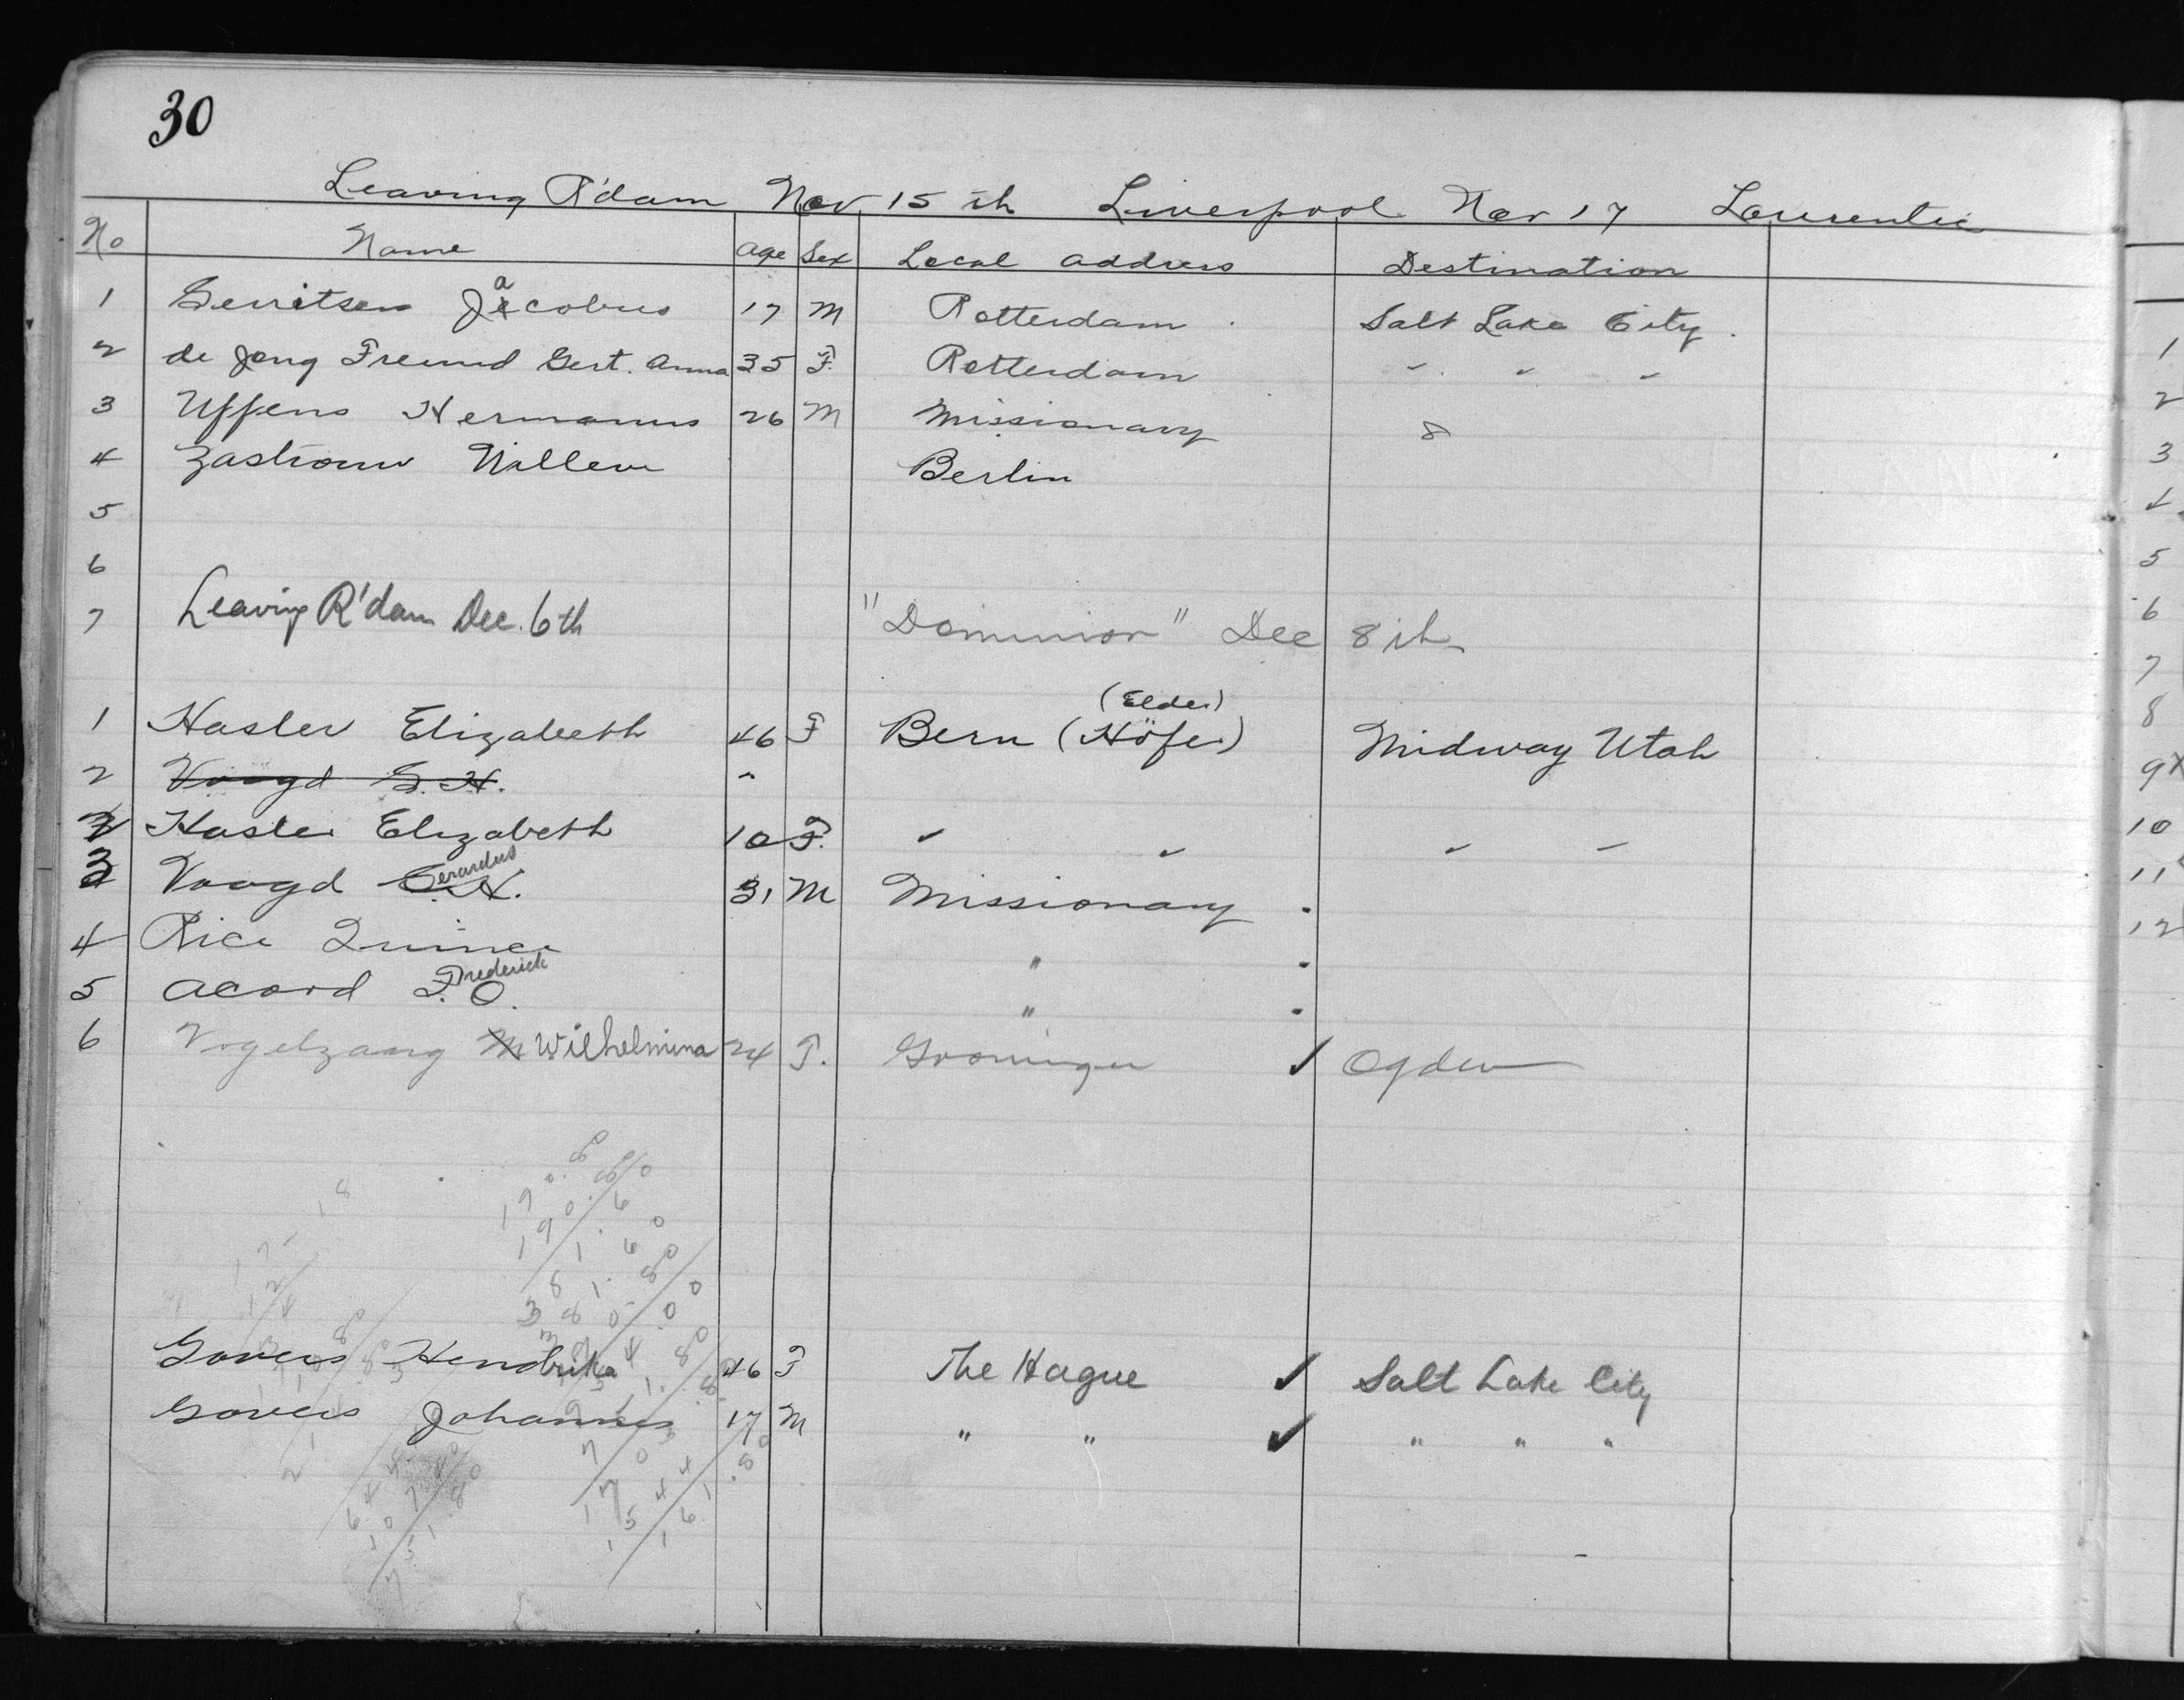 30
Leaving R'dam Nov 15th Liverpool Nov 17 Laurentic
No Name Age Sex Local address Destination
1 Gerritsen Jacobus 17 M Rotterdam. Salt Lake City.
2 de Jong Freund Gert. Anna 35 F. Rotterdam " " "
3 Uffens Hermanus 26 M Missionary 8
4 Zastrouw Willem Berlin
5
6
7 Leaving R'dam Dec. 6th "Dominion" Dec 8th
(Elder)
1 Hasler Elizabeth 46 F Bern (Höfer) Midway Utah
2 Voogd G. H. "
2 Hasler Elizabeth 10 F. " " " "
3 Voogd Gerardus H. 31 M Missionary
4 Rice Quince "
5 Acord F. O. Frederick "
6 Vogelzang M Wilhelmina 24 F. Groningen ✓ Ogden
Govers Hendrika 46 F The Hague ✓ Salt Lake City
Govers Johannes 17 M " " ✓ " " "
1
2
3
4
5
6
7
8
9
10
11
12